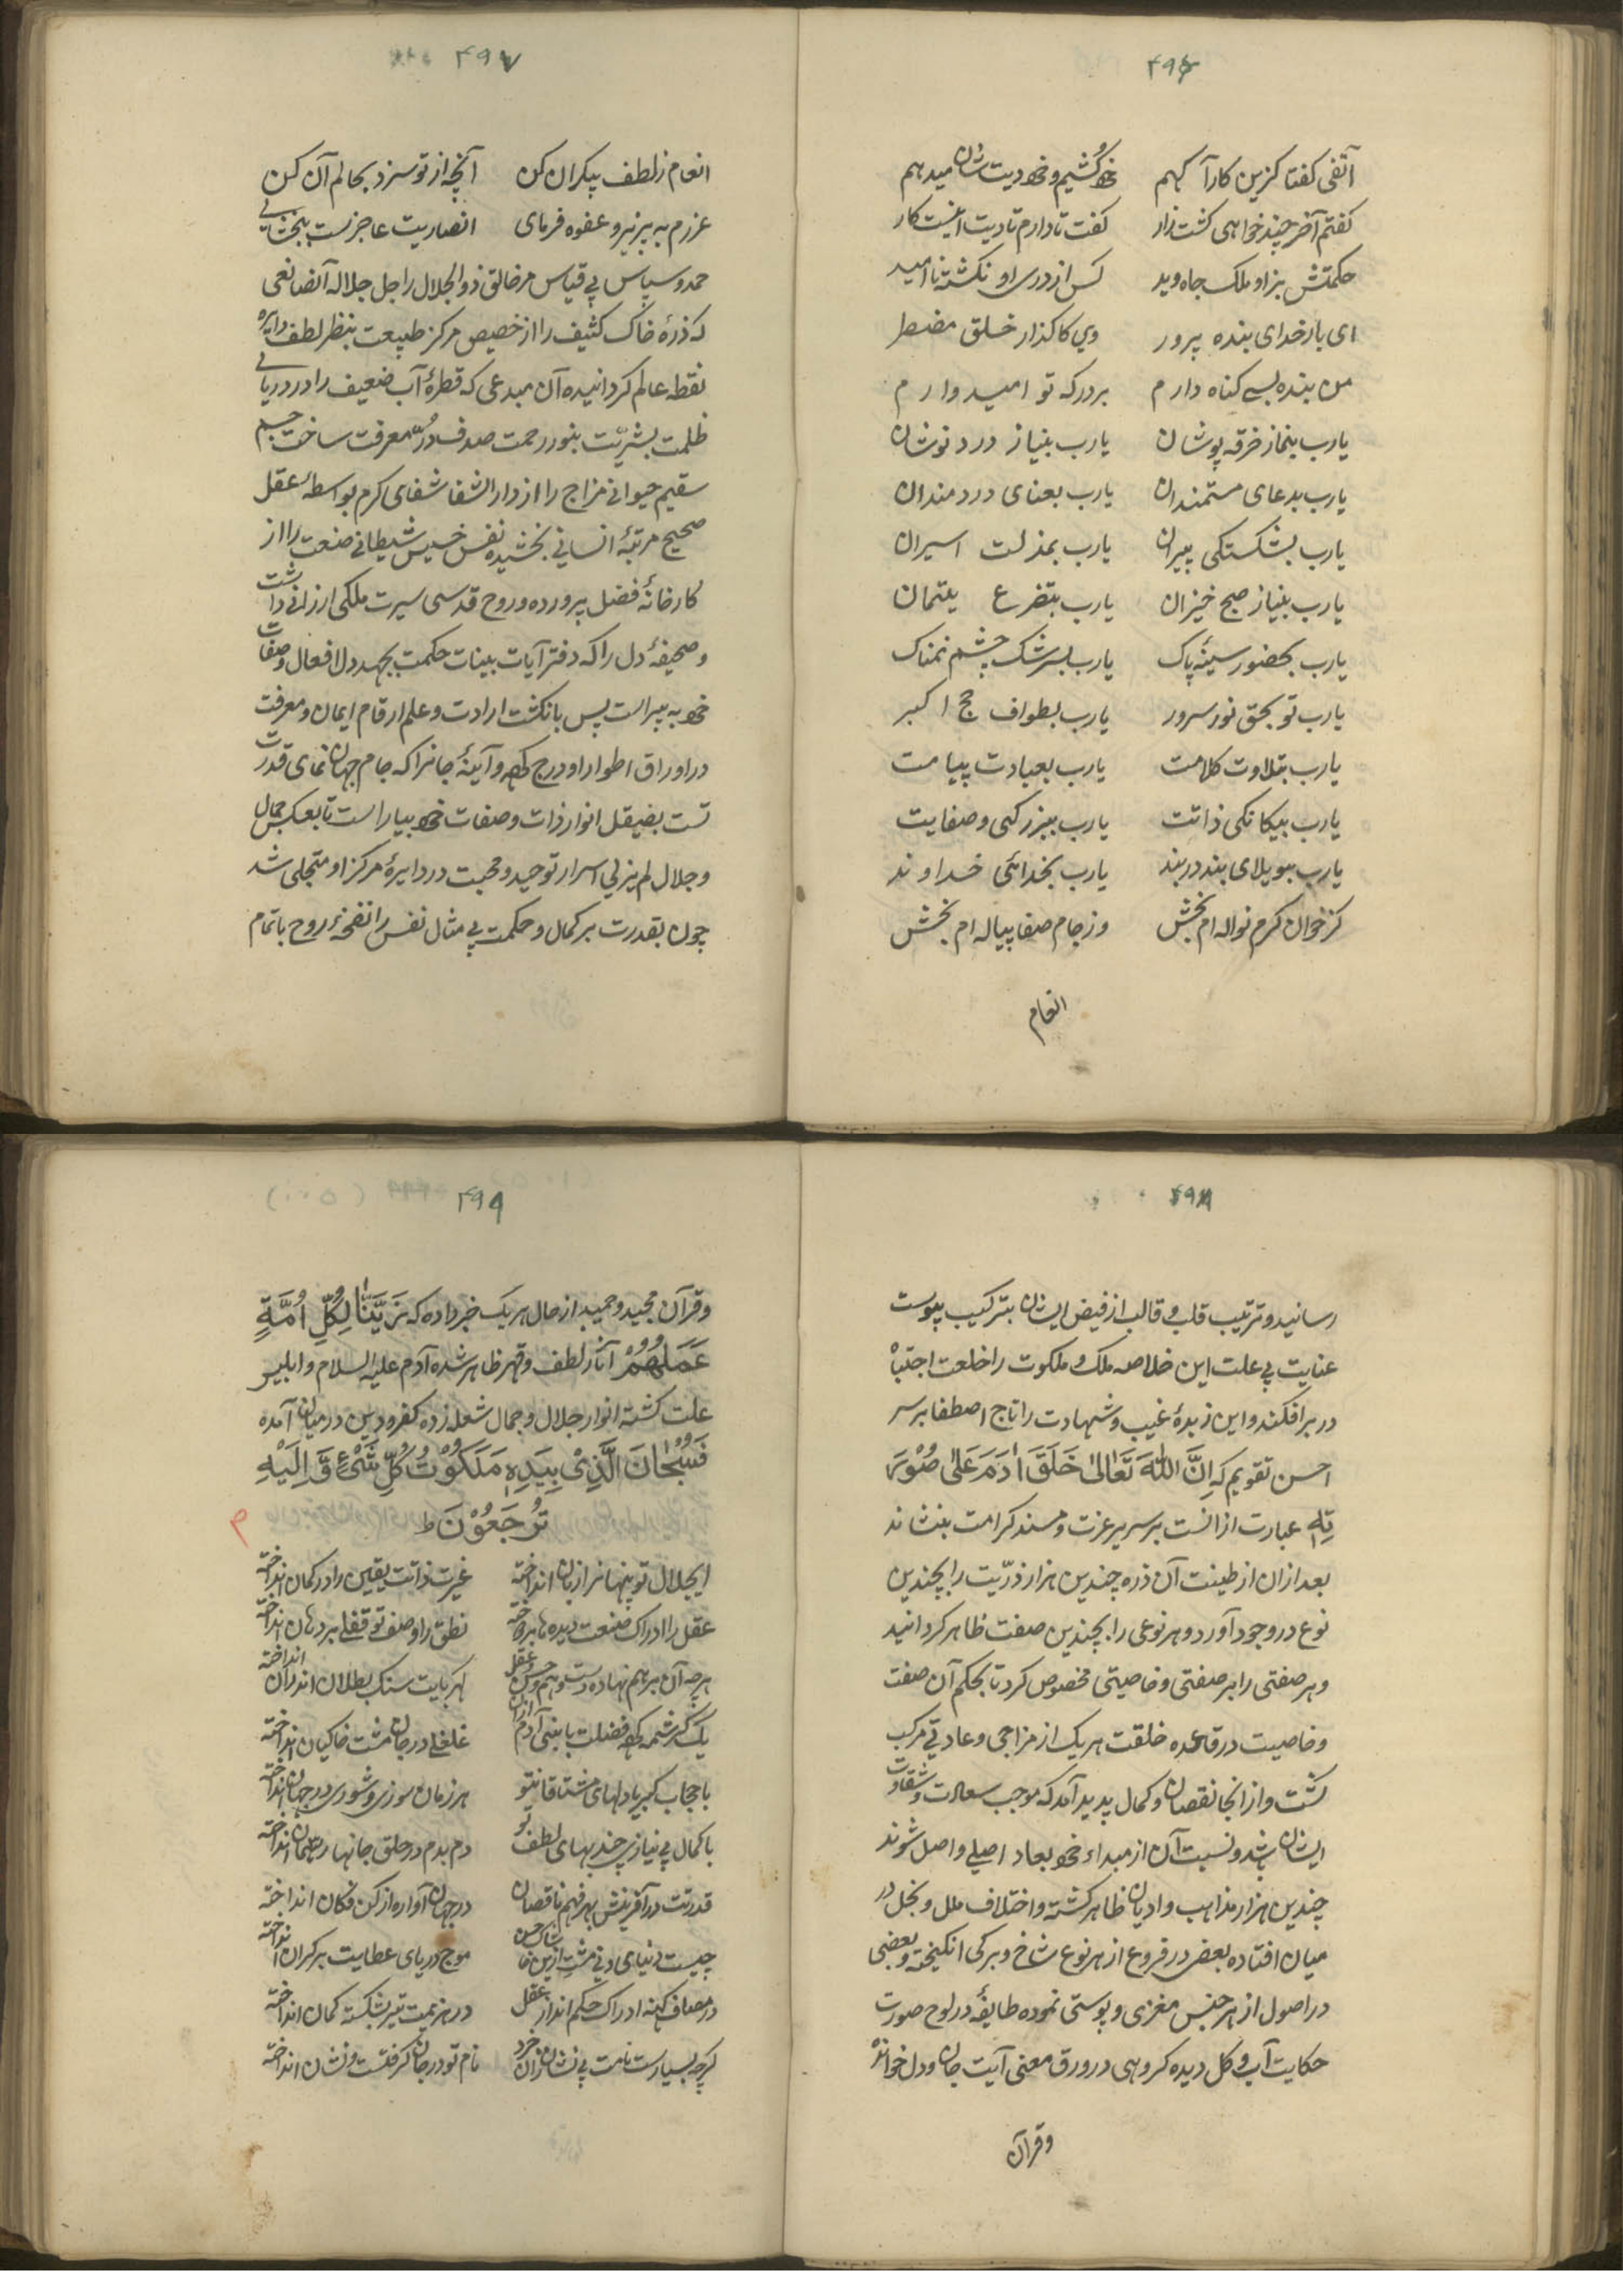 ۴۹۶
آتفی کفتا کزین کارآ کهم خود کُشیم و خود دیت شان میدهم
کفتم آخر چند خواهی کشت زار کفت تا دارم تا دیت اینست کار
حکمتش بزاو ملک جاه وید کس از دری او نکشته ناامید
ای بار خدای بنده پرور وی کاکذار خلق مضطر
من بنده بسے کناه دارم بر درکه تو امیدوارم
یارب بنماز خرقه پوشان یارب بنیاز درد نوشان
یارب بدعای مستمندان یارب بعنای دردمندان
یارب بشکستکی پیران یارب بمذلت اسیران
یارب بنیاز صبح خیزان یارب بتضرع یتیمان
یارب بحضور سینهٔ پاک یارب بسرشک چشم نمناک
یارب تو بحق نور سرور یارب بطواف حج اکبر
یارب بتلاوت کلامت یارب بعبادت پیامت
یارب بیکانکی ذاتت یارب ببزرکی و صفایت
یارب ببویلای بند دربند یارب بخدائی خداوند
کز خوان کرم نواله ام بخش وز جام صفا پیاله ام بخش
انعام
۴۹۷
انعام ز لطف بیکران کن آنچه از تو سزد بحالم آن کن
عزرم به پزیرو عفوه فرمای انصاریت عاجزست ببخشایے
حمد و سپاس بے قیاس مر خالق ذوالجلال را جل جلاله آنصانعی
که ذرهٔ خاک کثیف را از خصیص مرکز طبیعت بنظر لطف دایره
نقطه عالم کردانیده آن مبدعی که قطرهٔ آب ضعیف را در دریائے
ظلمت بشریّت بنور رحمت صدف درّ معرفت ساخت جسم
سقیم حیوانے مزاج را از دارالشفا شفای کرم بواسطهٔ عقل
صحیح مرتبهٔ انسانے بخشیده نفس خسیس شیطانی صنعت را از
کارخانهٔ فضل پرورده و روح قدسی سیرت ملکی ارزانے داشت
و صحیفهٔ دل را که دفتر آیات بینات حکمت بجهد دل افعال و صفات
خود به پیراست پس بانکشت ارادت و علم ارقام ایمان و معرفت
در اوراق اطوار او درج کرد و آیینهٔ جانرا که جام جهان نمای قدرت
تست بضیقل انوار ذات و صفات خود بیاراست تا بعکس جمال
و جلال لم یزلی اسرار توحید و محبت در دایرهٔ مرکز او متجلی شد
چون بقدرت بر کمال و حکمت بے مثال نفس را نفخهٔ روح باتمام
۴۹۸
رسانید و ترتیب قلب و قالب از فیض ایشان بترکیب پیوست
عنایت بے علت این خلاصه ملک و ملکوت را خلعت اجتباهْ
در بر افکند و این زبدهٔ غیب و شهادت را تاج اصطفا بر سر
احسن تقویم که اِنَّ اللّٰهَ تَعَالیٰ خَلَقَ اٰدَمَ عَلیٰ صُوْرَ
تِهٖ عبارت از انست بر سریر عزت و مسند کرامت بنشاند
بعد ازان از طینت آن ذره چندین هزار ذرّیت را بچندین
نوع در وجود آورد و هر نوعی را بچندین صفت ظاهر کردانید
و هر صفتی را بر صفتی و خاصیتی مخصوص کرد تا بحکم آن صفت
و خاصیت در قاعده خلقت هر یک از مزاجی و عادتے مرکب
کشت و از انجا نقصان و کمال پدید آمد که موجب سعادت و شقاوت
ایشان باشد و نسبت آن از مبداء خود بمعاد اصلے و اصل شوند
چندین هزار مذاهب و ادیان ظاهر کشته و اختلاف ملل و نحل در
میان افتاده بعضی در فروع از هر نوع شاخ و برکی انکیخته و بعضی
در اصول از هر جنس مغزی و پوستی نموده طایفهٔ در لوح صورت
حکایت آب و کل دیده کروهی در ورق معنی آیت جان و دل خوانده
و قرآن
۴۹۹
و قرآن مجید و حمید از حال هر یک خبر داده که زَیَّنَّا لِکُلِّ اُمَّةٍ
عَمَلَهُمْ آثار لطف و قهر ظاهر شده آدم علیه السلام و ابلیس
علت کشته انوار جلال و جمال شعله زده کفر و دین درمیان آمده
فَسُبْحَانَ الَّذِیْ بِیَدِهٖ مَلَکُوْتُ کُلِّ شَیْءٍ وَّ اِلَیْهِ
تُرْجَعُوْنَ ط
ایجلال تو پنهانرا زبان انداخته غیرت ذاتت یقین را در کمان انداخته
عقل را ادراک صنعت دیده ها بردوخته نطق را وصف تو قفلے بر دهان انداخته
هر چه آن بر هم نهاده دست وهم و حس و عقل کبریایت سنک بطلان اندران انداخته
یک کرشمه کرد فضلت با بنی آدم ازان غلغلے در جان مشت خاکیان انداخته
با حجاب کبریا دلهای مشتاقانتو هر زمان سوزی و شوری در جهان انداخته
با کمال بے نیازی جذبهای لطف تو دم بدم در حلق جانها ریسمان انداخته
قدرتت در آفرینش بهر فهم ناقصان در جهان آوازه از کن فکان انداخته
چیست دنیای دنی مشت ازین خاشاک حسن موج دریای عطایت بر کران انداخته
در مصاف کنه ادراک حکم انداز عقل در هزیمت تیر بشکسته کمان انداخته
کرچه بسیارست نامت بے نشان زان خرد نام تو در جان کرفتست و نشان انداخته